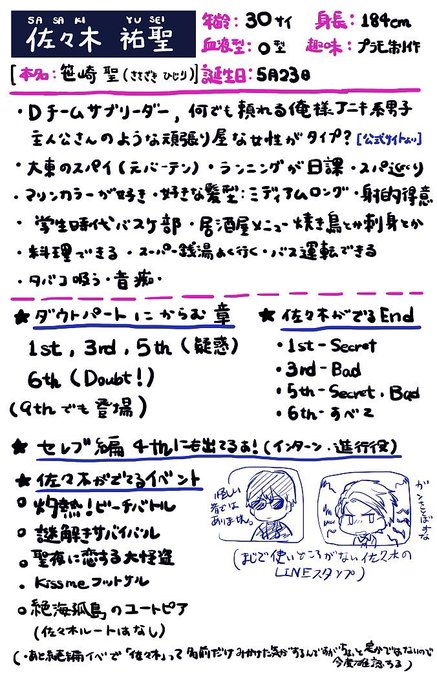 SA SA KI YU SEI
佐々木 祐聖
年齢:30サイ 身長:184cm
血液型:O型 趣味:プラモ制作
[本名:笹崎 聖(ささざき ひじり)] 誕生日:5月23日
・Dチームサブリーダー, 何でも頼れる俺様アニキ系男子
主人公さんのような頑張り屋な女性がタイプ?[公式サイトより]
・大東のスパイ(元バーテン)・ランニングが日課・スパ巡り
・マリンカラーが好き・好きな髪型:ミディアムロング・射的得意
・学生時代バスケ部・居酒屋メニュー焼き鳥とか刺身とか
・料理できる・スーパー銭湯よく行く・バス運転できる
・タバコ吸う・音痴・
★ダウトパートにからむ章
1st, 3rd, 5th(疑惑)
6th(Doubt!)
(9thでも登場)
★佐々木がでるEnd
・1st-Secret
・3rd-Bad
・5th-Secret・Bad
・6th-すべて
★セレブ編 4thにも出てるよ!(インターン・進行役)
★佐々木がでてるイベント
○灼熱!ビーチバトル
○謎解きサバイバル
○聖夜に恋する大怪盗
○Kiss meフットサル
○絶海孤島のユートピア
(佐々木ルートはなし)
怪しい者ではありません。
(まじで使いところがない佐々木のLINEスタンプ)
(・あと続編イベで「佐々木」って名前だけみかけた気がするんですが
今度確認する)